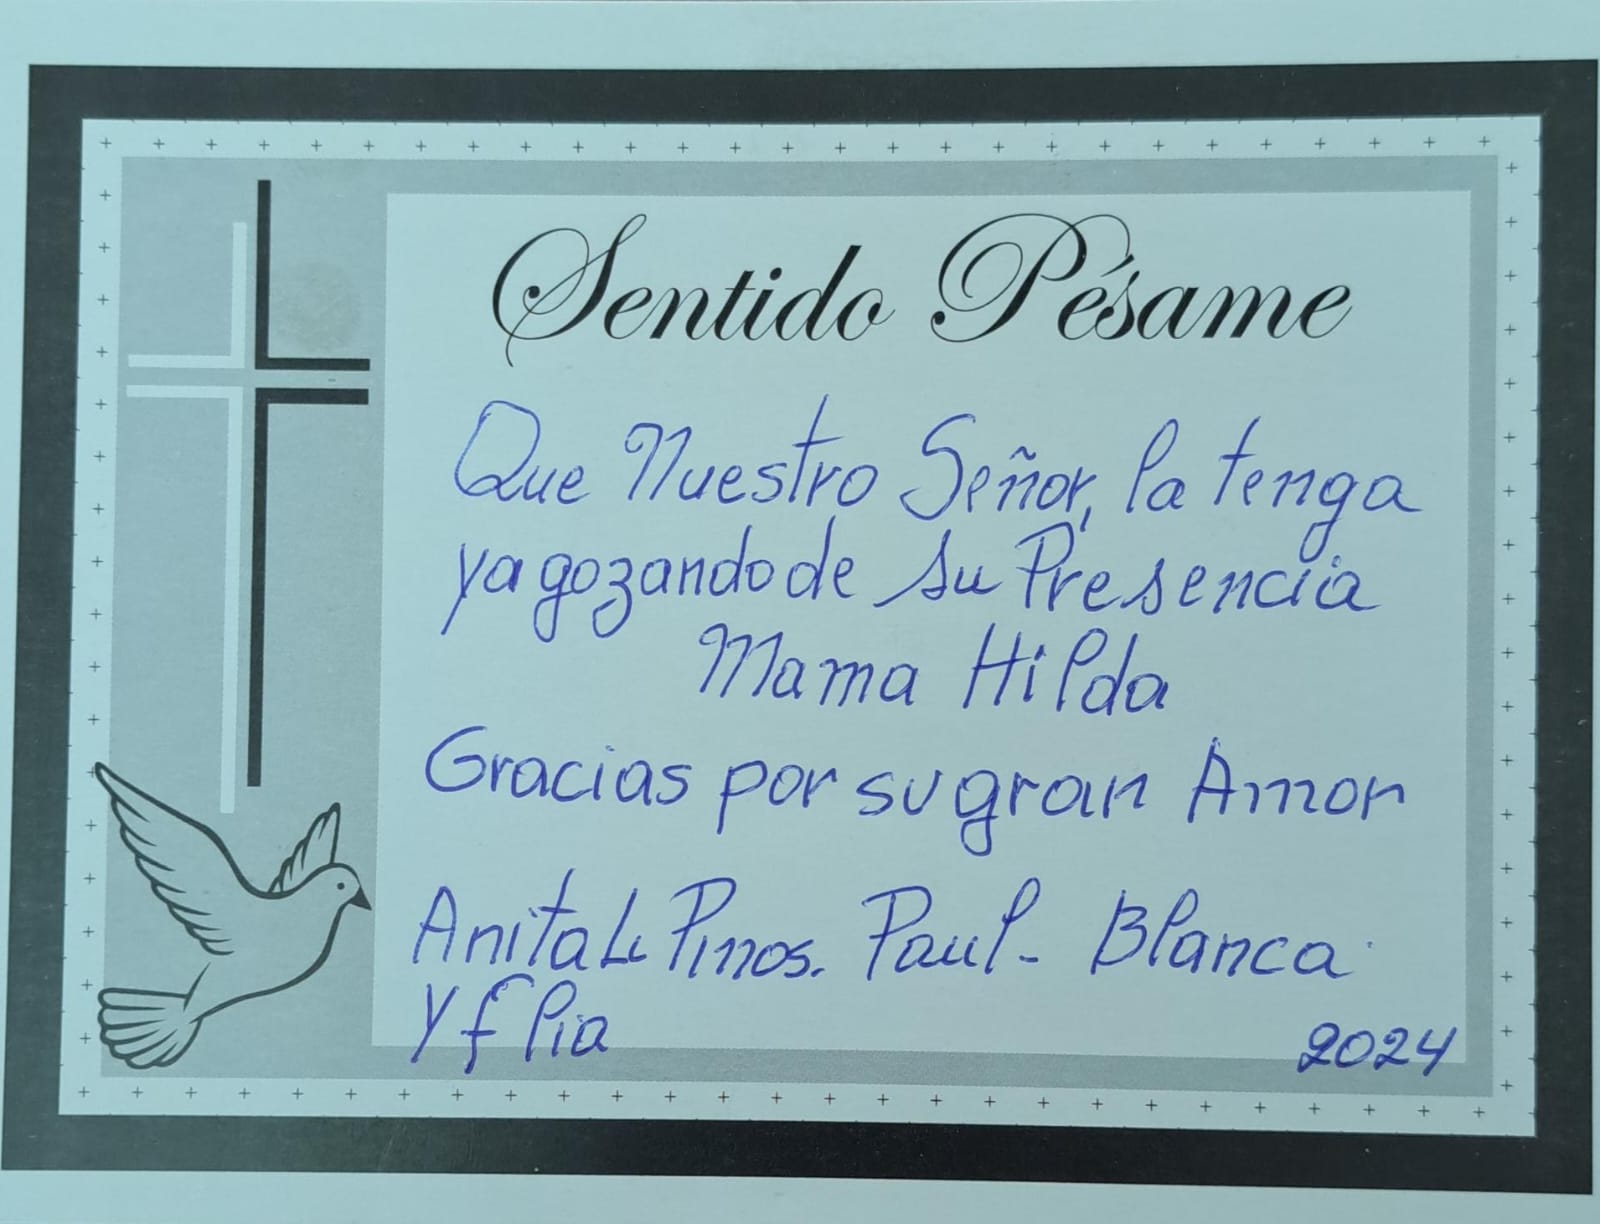 Sentido Pésame
Que Nuestro Señor, la tenga
ya gozando de su Presencia
Mama Hilda
Gracias por su gran Amor
Anita L Pinos. Paul - Blanca
y flia
2024